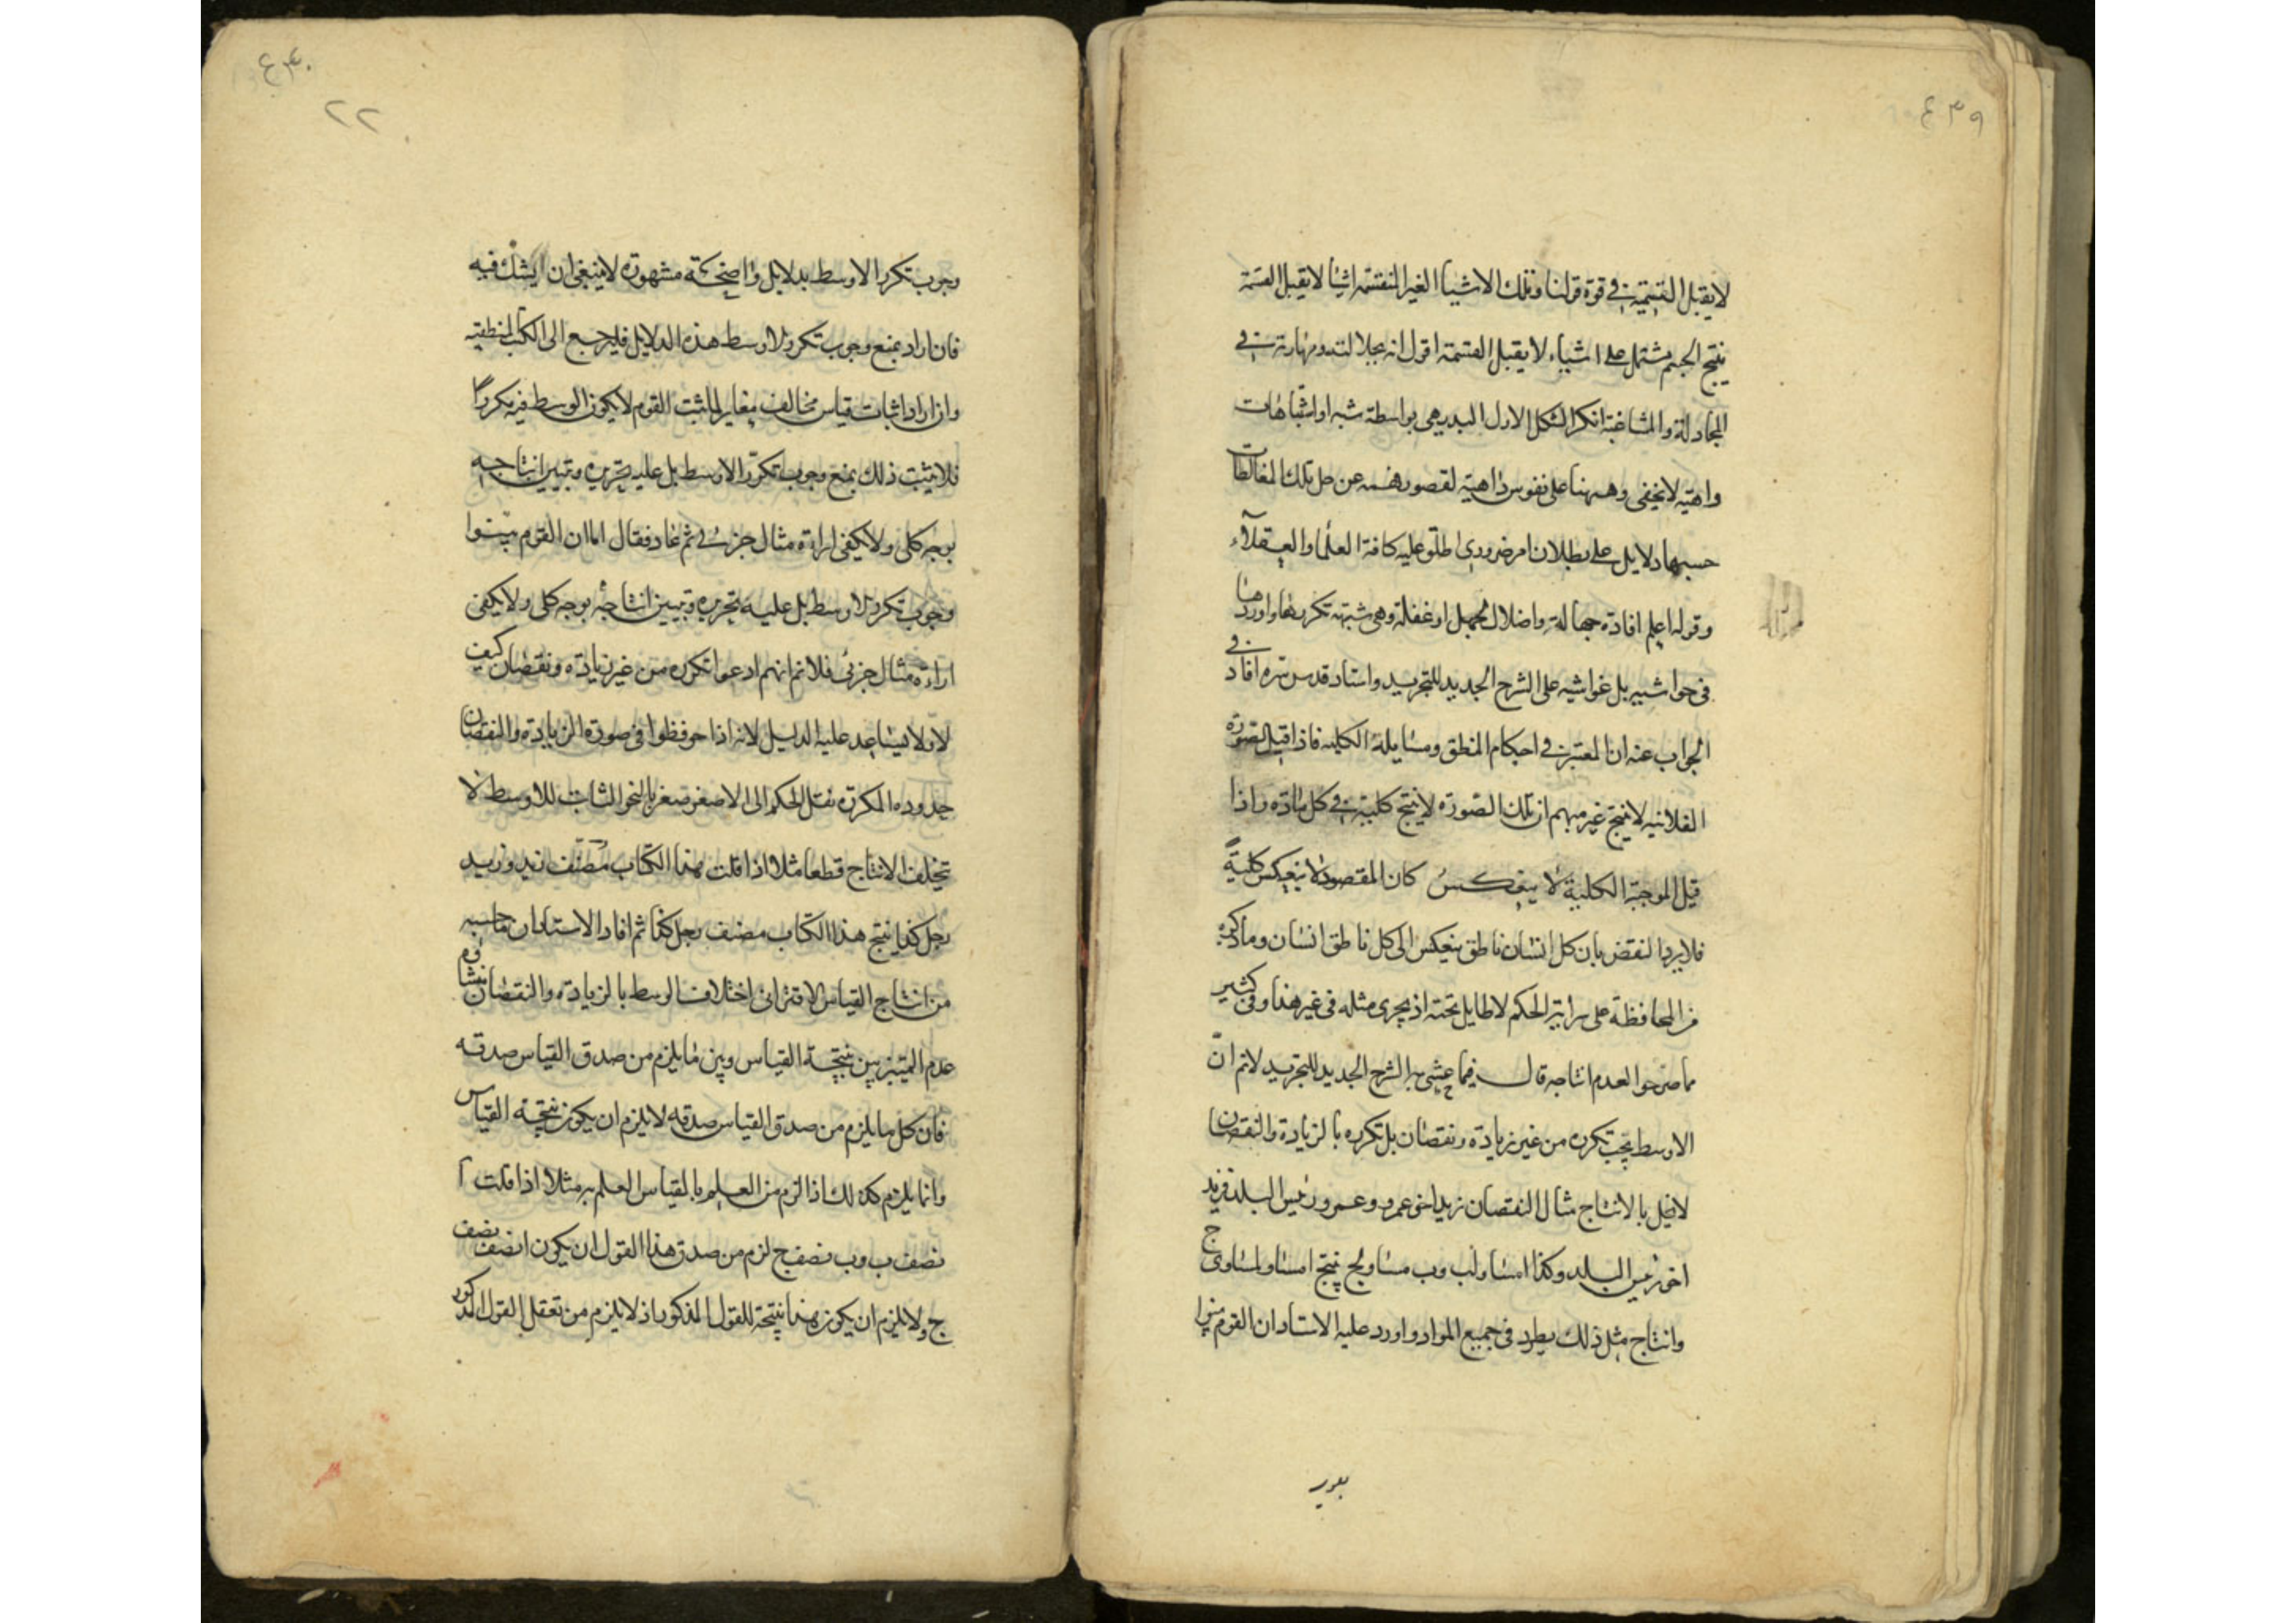 ٤٣٩
لا يقبل القسمة في قوة قولنا وتلك الاشيا الغير المنقسمة اشيا لا يقبل القسمة
ينتج الجسم مشتمل على اشياء لا يقبل القسمة اقول انه بجلالته ومهارته في
المجادلة والمشاغبة انكر الشكل الاول البديهي بواسطة شبه او اشتباهات
واهية لا يخفى وهنها على نفوس ذاهية لقصور فهمه عن حل تلك المغالطات
حسبها دلايل على بطلان امر ضروري اطلق عليه كافة العلما والعقلآء
وقوله اعلم افادة جهالة واضلال لجهل او غفلة وهي شبهته تكررها واوردها
في حواشيه بل غواشيه على الشرح الجديد للتجريد واستاد قدس سره افاد في
الجواب عنه ان المعتبر في احكام المنطق ومسايله الكلية فاذا قيل الصورة
الفلانيه لا ينتج غير مبهم ان تلك الصورة لا ينتج كلية في كل مادة واذا
قيل الموجبة الكلية لا ينعكس كان المقصود لا ينعكس كليةً
فلا يرد النقض بان كل انسان ناطق ينعكس الى كل ناطق انسان وما ذكره
من المحافظة على سراية الحكم لا طايل تحته اذ يجرى مثله في غير هذا وفي كثير
مما صرحوا لعدم انتاجه قال فيما حشي به الشرح الجديد للتجريد لانم انّ
الاوسط يجب تكرره من غير زيادة ونقصان بل تكرره بالزيادة والنقصان
لا يخل بالانتاج مثال النقصان زيد اخو عمرو وعمرو رئيس البلد فزيد
اخو رئيس البلد وكذا ا مساو لب وب مساو لج ينتج ا مساو لمساوى ج
وانتاج مثل ذلك يطرد في جميع المواد واورد عليه الاستاد ان القوم بينوا
٤٤٠
٢٢
وجوب تكرر الاوسط بدلايل واضحة مشهورة لا ينبغي ان يشك فيه
فان اراد بمنع وجوب تكرر الاوسط هذه الدلايل فليرجع الى الكتب المنطقيه
وان اراد اثبات قياس مخالف مغاير لما يثبت القوم لا يكون الوسط فيه مكررًا
فلا يثبت ذلك بمنع وجوب تكرّر الاوسط بل عليه تحريره وتبيين انتاجه
بوجه كلى ولا يكفى اراءة مثال جزئي ثم عاد فقال اما ان القوم بينوا
وجوب تكرر الاوسط بل عليه تحريره وتبيين انتاجه بوجه كلى ولا يكفى
اراءة مثال جزئي فلانم انهم ادعوا تكرره من غير زيادة ونقصان كيف
لا ولا يساعد عليه الدليل لانه اذا حوفظوا في صورة الزيادة والنقصان
حدوده المكررة نقل الحكم الى الاصغر صغر بالنحو الثابت للاوسط لا
يتخلف الانتاج قطعا مثلا اذا قلت هذا الكتاب مصنف زيد وزيد
رجل كذا ينتج هذا الكتاب مصنف رجل كذا ثم افاد الاستاد ان ما حسبه
من انتاج القياس الاقترانى اختلاف الوسط بالزيادة والنقصان نشأ
عدم التمييز بين نتيجة القياس وبين ما يلزم من صدق القياس صدقه
فان كل ما يلزم من صدق القياس صدقه لا يلزم ان يكون نتيجة القياس
وانما يلزم كذلك اذا لزم من العلم بالقياس العلم به مثلا اذا قلت آ
نصف ب وب نصف ج لزم من صدق هذا القول ان يكون ا نصف نصف
ج ولا يلزم ان يكون هذا نتيجة للقول المذكور اذ لا يلزم من تعقل القول المذكور